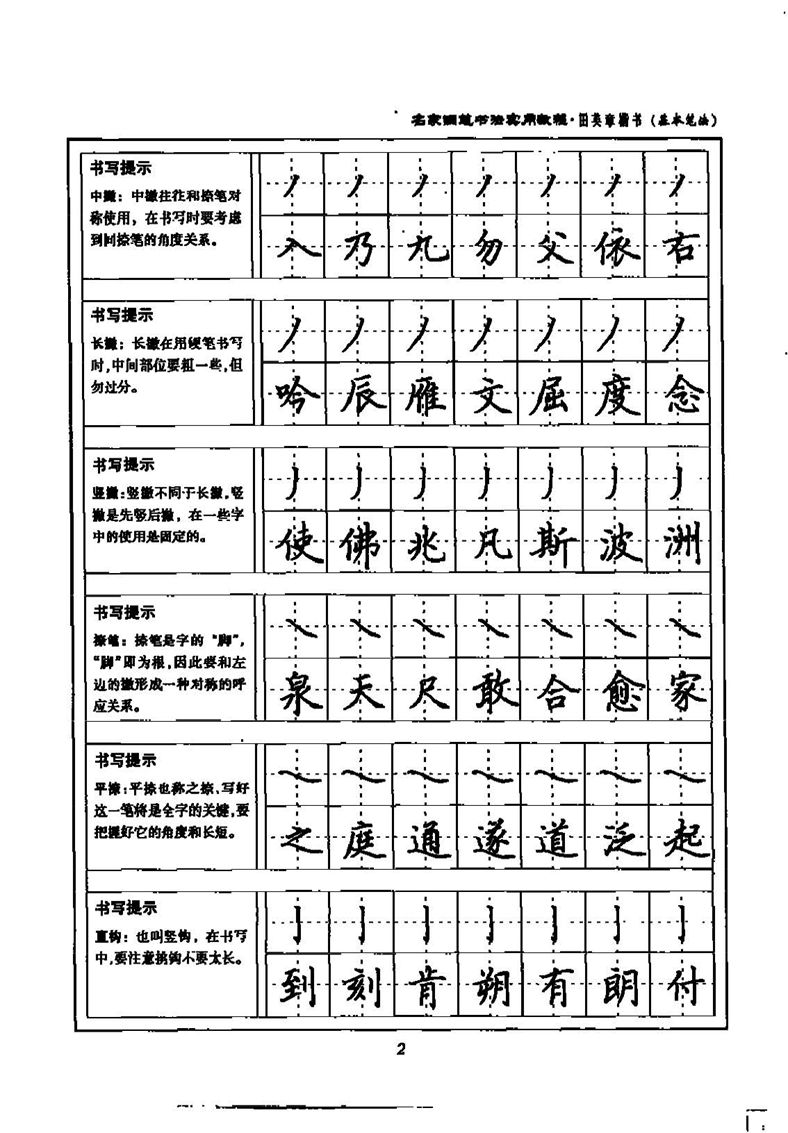 名家钢笔书法实用教程·田英章楷书（基本笔法）
书写提示
中撇：中撇往往和捺笔对
称使用，在书写时要考虑
到同捺笔的角度关系。
入 乃 九 勿 父 依 右
书写提示
长撇：长撇在用硬笔书写
时,中间部位要粗一些,但
勿过分。
吟 辰 雁 文 屈 度 念
书写提示
竖撇:竖撇不同于长撇,竖
撇是先竖后撇，在一些字
中的使用是固定的。
使 佛 兆 凡 斯 波 洲
书写提示
捺笔：捺笔是字的“脚”，
“脚”即为根,因此要和左
边的撇形成一种对称的呼
应关系。
泉 天 尺 敢 合 愈 家
书写提示
平捺:平捺也称之捺,写好
这一笔将是全字的关键,要
把握好它的角度和长短。
之 庭 通 遂 道 泛 起
书写提示
直钩：也叫竖钩，在书写
中,要注意挑钩不要太长。
到 刻 肯 朔 有 朗 付
2